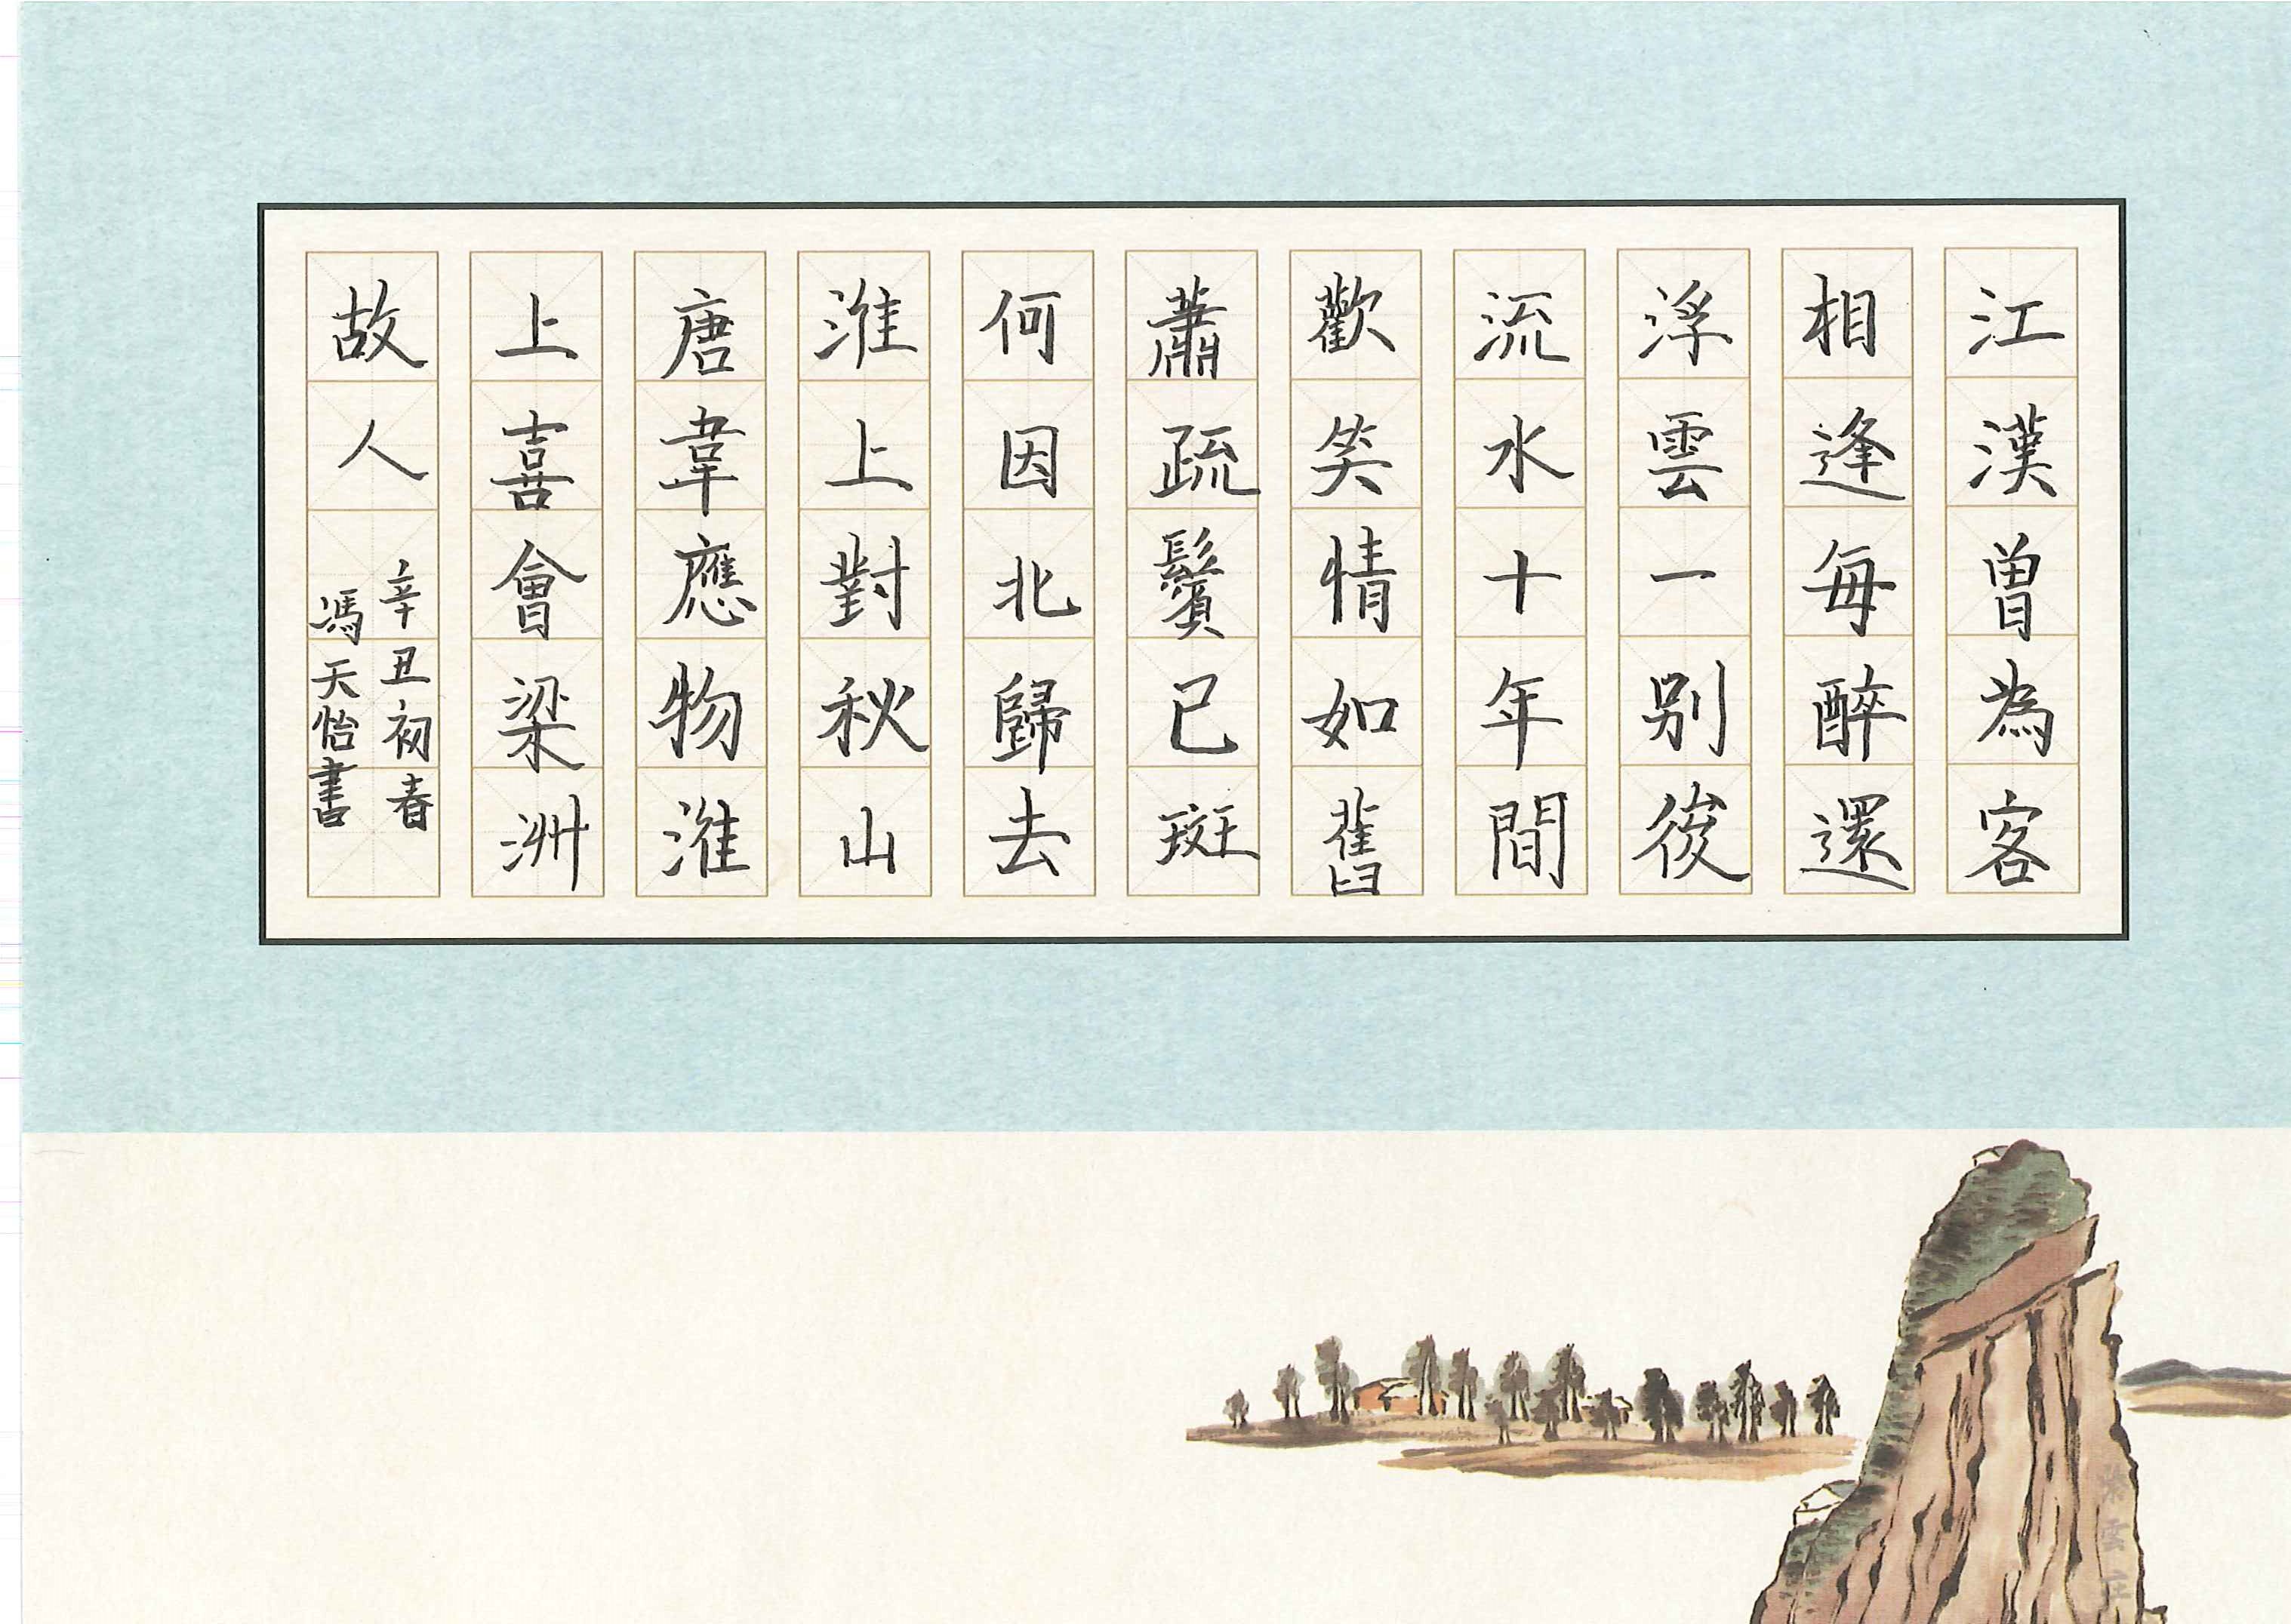 江漢曾為客
相逢每醉還
浮雲一別後
流水十年間
歡笑情如舊
蕭疏鬢已斑
何因北歸去
淮上對秋山
唐韋應物淮
上喜會梁洲
故人
辛丑初春
馮天怡書